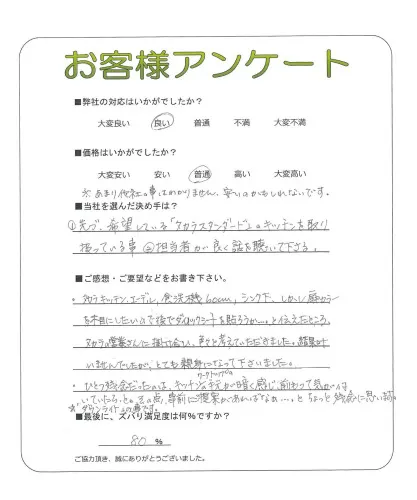 お客様アンケート
■弊社の対応はいかがでしたか？
大変良い 良い 普通 不満 大変不満
■価格はいかがでしたか？
大変安い 安い 普通 高い 大変高い
※あまり他社の事はわかりません、安いのかもしれないです。
■当社を選んだ決め手は？
①先づ、希望している「タカラスタンダード」のキッチンを取り
扱っている事 ②担当者が良く話を聴いて下さる。
■ご感想・ご要望などをお書き下さい。
・タカラキッチン、エーデル、食洗機60cm、シンク下、しかし扉カラー
を木目にしたいので後でダイノックシートを貼ろうか…。と伝えたところ、
タカラの営業さんに掛け合い、色々と考えていただきました。結果が
いませんでしたが、とても親身になって下さいました。
・ひとつ残念だったのは、キッチンの手元が暗く感じ、前もって気が
ワークトップの
いていたら、と。その点、事前に提案があればなぁ…。と ちょっと残念に思い
ダウンライトの事です。
■最後に、ズバリ満足度は何％ですか？
80 ％
ご協力頂き、誠にありがとうございました。